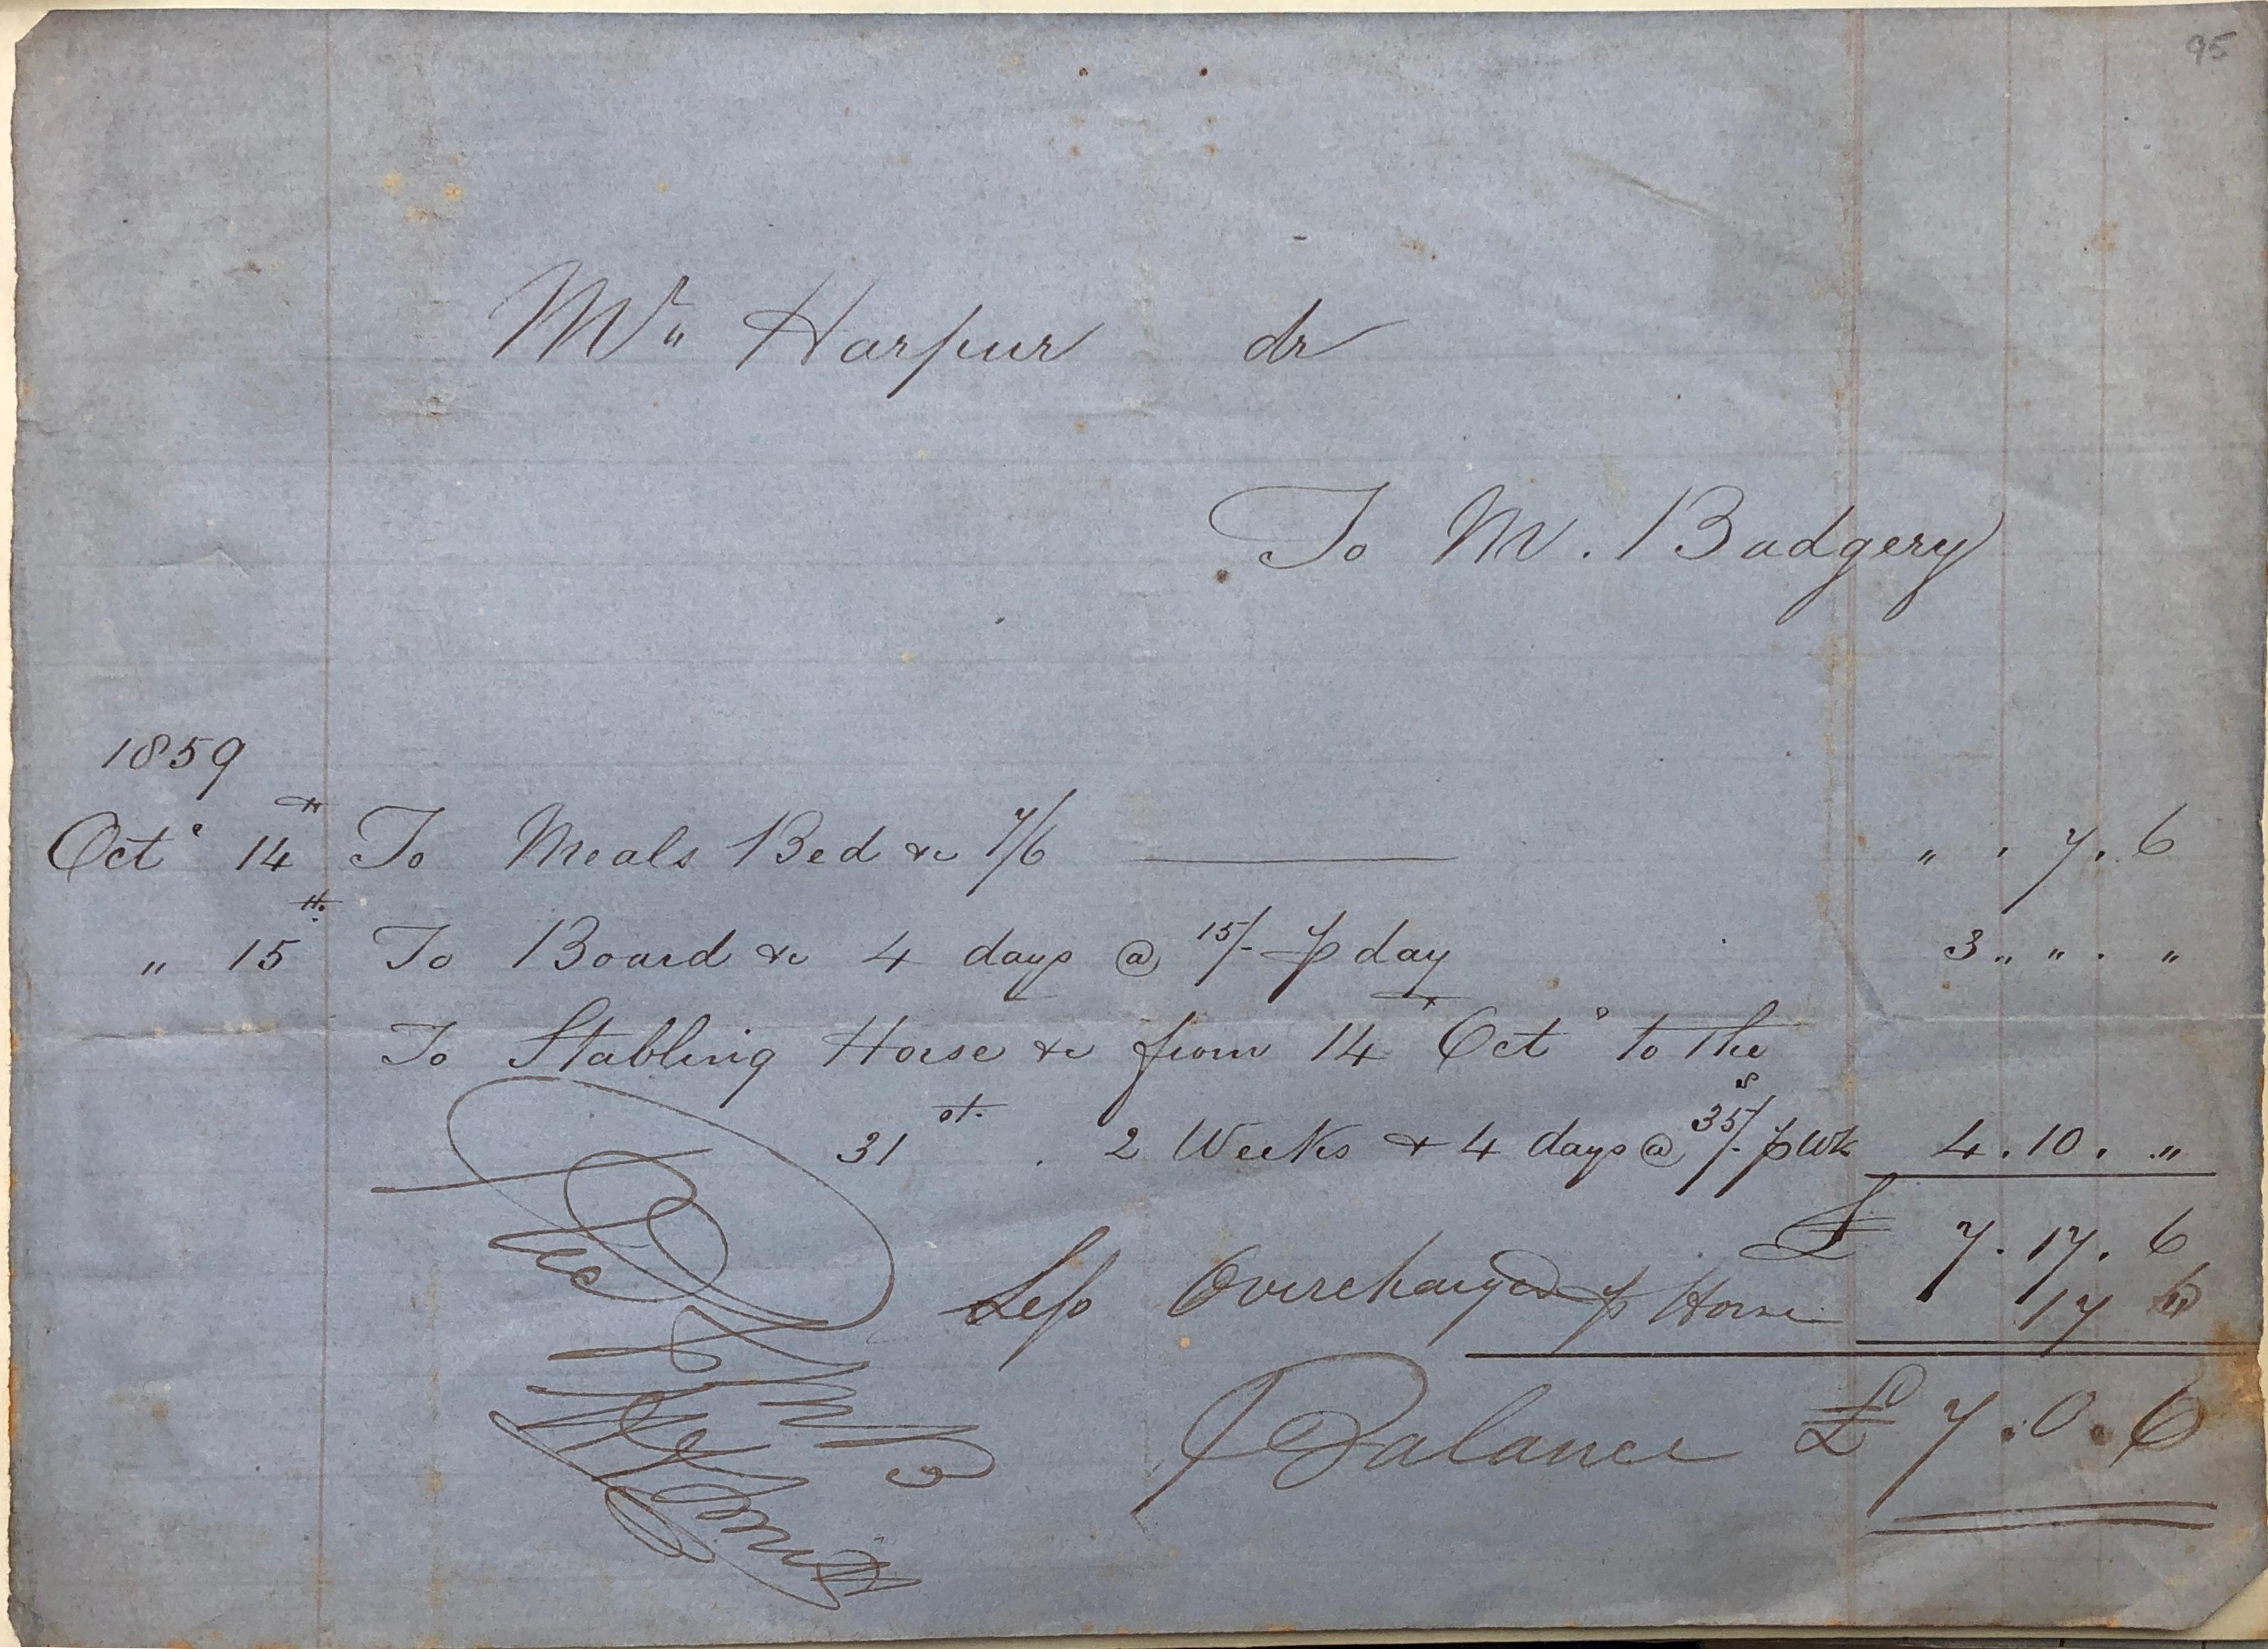 95
Mr. Harpur dr
To M. Badgery
1859
Oct. 14th To Meals Bed &c 7/6 ——— " . 7. 6
" 15th To Board &c 4 days @ 15/- p day 3 " " . "
To Stabling Horse &c from 14th Oct. to the
31st. 2 Weeks & 4 days @ 35/- p Wk 4. 10. "
£ 7. 17. 6
Less Overcharged p Horse 17
Balance £ 7. 0. 6